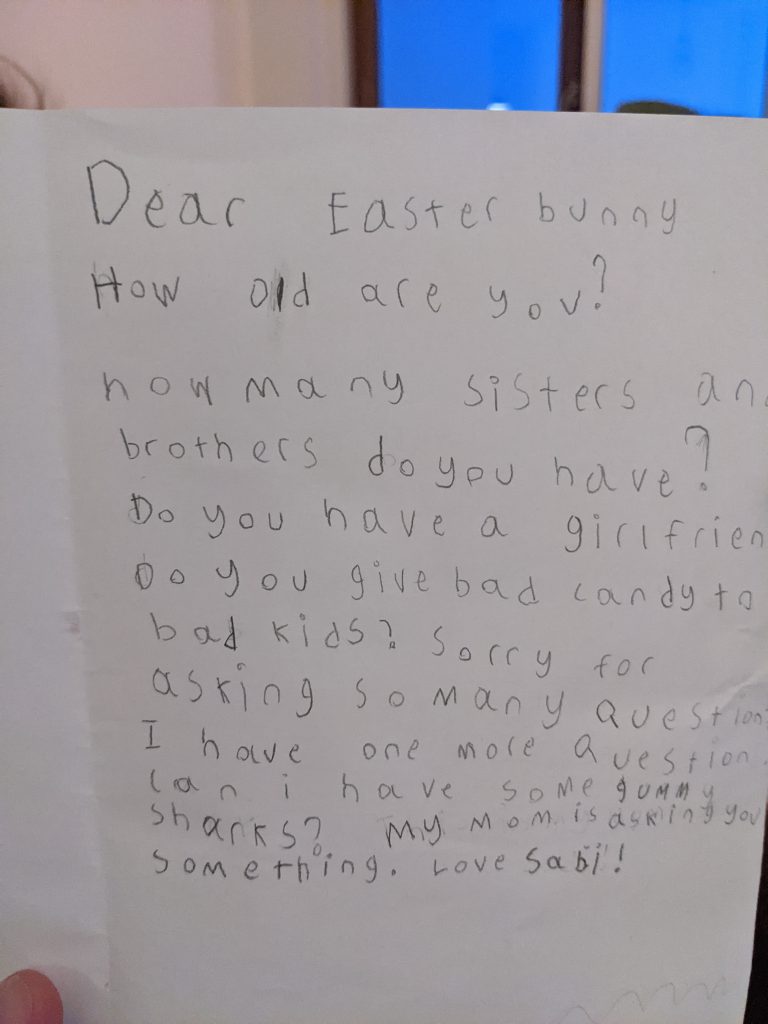 Dear Easter bunny
How old are you?
how many sisters an
brothers do you have?
Do you have a girlfrien
Do you give bad candy to
bad kids? Sorry for
asking so many question
I have one more question.
Can i have some gummy
sharks? My mom is asking you
something. Love Sabi!